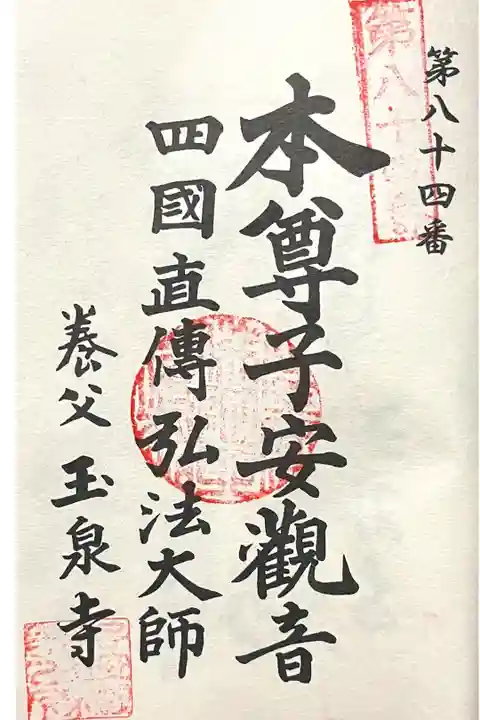 第八十四番
本尊子安觀音
四國直傳弘法大師
養父玉泉寺